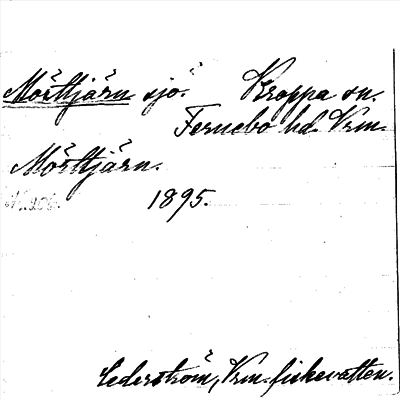 Mörttjärn sjö. Kroppa sn.
Fernebo hd. Vrm.
Mörttjärn.
1895.
Cederström, Vrm. fiskevatten.